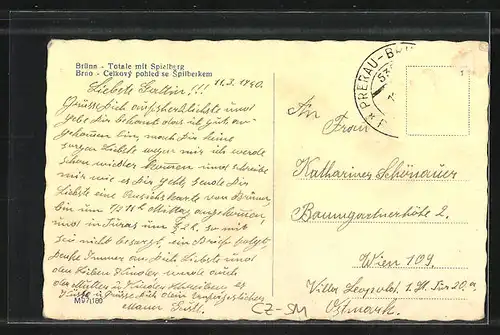 Brünn - Totale mit Spielberg
Brno - Celkový pohled se Špilberkem
11.3.1940.
Liebste Gattin!!!
Grüsse Dich aufs herzlichste und
gebe Dir bekannt das ich gut an-
gekommen bin, mach Dir keine
sorgen Liebste wegen mir ich werde
schon wieder kommen und schreibe
mir wie es Dir geht sende Dir
Liebste eine Ansichtskarte von Brünn
bin um 1/2 11 Mittag angekommen,
und in Turas um
sei nicht besorgt, ein Brief folgt
denke immer an Dich Liebste und
den lieben Kinder werde auch
der Mutter u Kinder schreiben es
Küsst u Grüsst Dich dein unvergesslicher
Mann
M 97/180
CZ-SM
PRERAU-BRÜ
An
Frau
Katharina Schönauer
Baumgartnerhöhe 2.
Wien 109,
Villa Leopolst. 1. St. Tür 20.a
Ostmark.